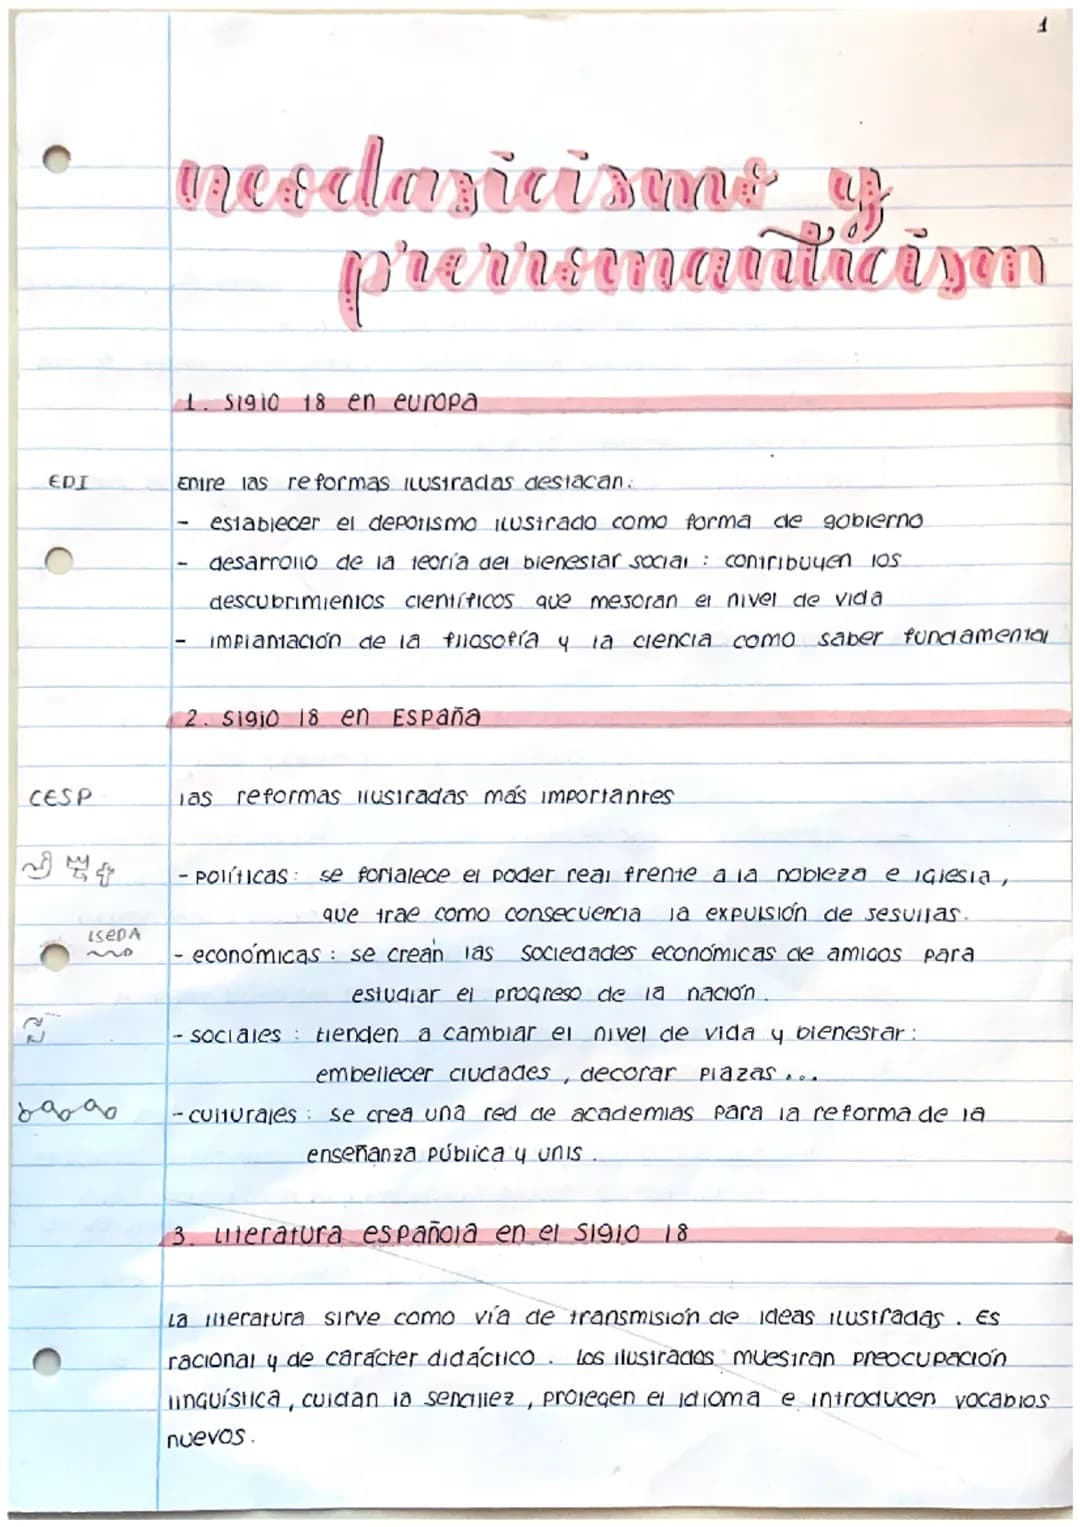 1
neoclasicismo y
prerromanticism
1. Siglo 18 en europa
EDI
Entre las reformas ilustradas destacan:
- establecer el depotismo ilustrado como forma de gobierno
- desarrollo de la teoría del bienestar social : contribuyen los
descubrimientos científicos que mejoran el nivel de vida
- implantación de la filosofía y la ciencia como saber fundamental
2. Siglo 18 en España
CESP
las reformas ilustradas más importantes
- Políticas: se fortalece el poder real frente a la nobleza e iglesia,
que trae como consecuencia la expulsión de jesuitas.
ISEDA
- económicas : se crean las Sociedades económicas de amigos para
estudiar el progreso de la nación.
- sociales : tienden a cambiar el nivel de vida y bienestar:
embellecer ciudades, decorar plazas...
- culturales : se crea una red de academias para la reforma de la
enseñanza pública y unis.
3. Literatura española en el siglo 18
La literatura sirve como vía de transmisión de ideas ilustradas. Es
racional y de carácter didáctico. Los ilustrados muestran preocupación
lingüística, cuidan la sencillez, protegen el idioma e introducen vocablos
nuevos.